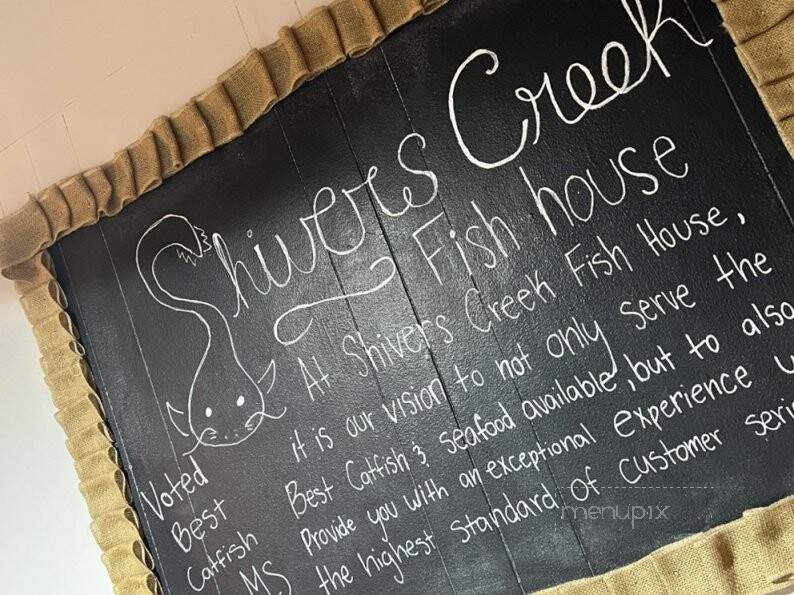 Shivers Creek
Fish house
At Shivers Creek Fish House,
it is our vision to not only serve the
Best Catfish & seafood available, but to also
Provide you with an exceptional experience
the highest standard of customer
Voted
Best
Catfish
MS
menupix